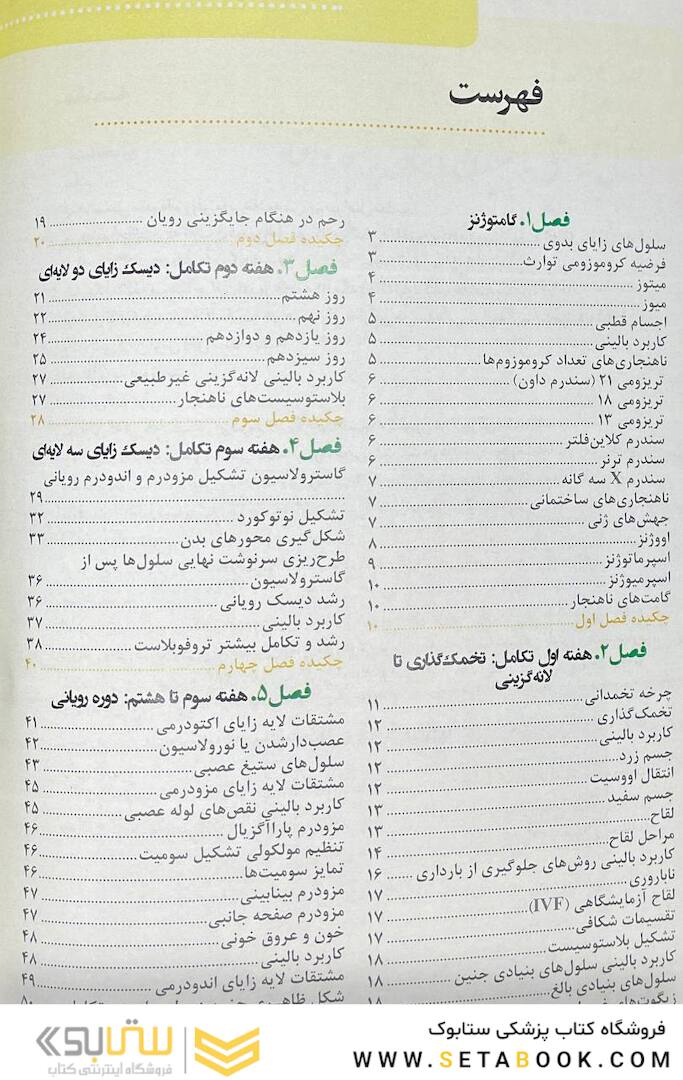 فهرست
فصل ۱. گامتوژنز
سلول‌های زایای بدوی ۳
فرضیه کروموزومی توارث ۳
میتوز ۴
میوز ۴
اجسام قطبی ۵
کاربرد بالینی ۵
ناهنجاری‌های تعداد کروموزوم‌ها ۵
تریزومی ۲۱ (سندرم داون) ۶
تریزومی ۱۸ ۶
تریزومی ۱۳ ۶
سندرم کلاین‌فلتر ۶
سندرم ترنر ۶
سندرم X سه گانه ۷
ناهنجاری‌های ساختمانی ۷
جهش‌های ژنی ۷
اووژنز ۸
اسپرماتوژنز ۹
اسپرمیوژنز ۱۰
گامت‌های ناهنجار ۱۰
چکیده فصل اول ۱۰
فصل ۲. هفته اول تکامل: تخمک‌گذاری تا
لانه‌گزینی
چرخه تخمدانی ۱۱
تخمک‌گذاری ۱۲
کاربرد بالینی ۱۲
جسم زرد ۱۲
انتقال اووسیت ۱۲
جسم سفید ۱۳
لقاح ۱۳
مراحل لقاح ۱۴
کاربرد بالینی روش‌های جلوگیری از بارداری ۱۶
ناباروری ۱۷
لقاح آزمایشگاهی (IVF) ۱۷
تقسیمات شکافی ۱۷
تشکیل بلاستوسیست ۱۸
کاربرد بالینی سلول‌های بنیادی جنین ۱۸
سلول‌های بنیادی بالغ ۱۸
رحم در هنگام جایگزینی رویان ۱۹
چکیده فصل دوم ۲۰
فصل ۳. هفته دوم تکامل: دیسک زایای دو لایه‌ای
روز هشتم ۲۱
روز نهم ۲۲
روز یازدهم و دوازدهم ۲۴
روز سیزدهم ۲۵
کاربرد بالینی لانه‌گزینی غیرطبیعی ۲۷
بلاستوسیست‌های ناهنجار ۲۷
چکیده فصل سوم ۲۸
فصل ۴. هفته سوم تکامل: دیسک زایای سه لایه‌ای
گاسترولاسیون تشکیل مزودرم و اندودرم رویانی
۲۹
تشکیل نوتوکورد ۳۲
شکل‌گیری محورهای بدن ۳۳
طرح‌ریزی سرنوشت نهایی سلول‌ها پس از
گاسترولاسیون ۳۶
رشد دیسک رویانی ۳۶
کاربرد بالینی ۳۷
رشد و تکامل بیشتر تروفوبلاست ۳۸
چکیده فصل چهارم ۴۰
فصل ۵. هفته سوم تا هشتم: دوره رویانی
مشتقات لایه زایای اکتودرمی ۴۱
عصب‌دارشدن یا نورولاسیون ۴۲
سلول‌های ستیغ عصبی ۴۳
مشتقات لایه زایای مزودرمی ۴۵
کاربرد بالینی نقص‌های لوله عصبی ۴۵
مزودرم پاراآگزیال ۴۶
تنظیم مولکولی تشکیل سومیت ۴۶
تمایز سومیت‌ها ۴۶
مزودرم بینابینی ۴۷
مزودرم صفحه جانبی ۴۷
خون و عروق خونی ۴۸
کاربرد بالینی ۴۸
مشتقات لایه زایای اندودرمی ۴۹
فروشگاه کتاب پزشکی ستابوک
WWW.SETABOOK.COM
ستابوک
فروشگاه اینترنتی کتاب